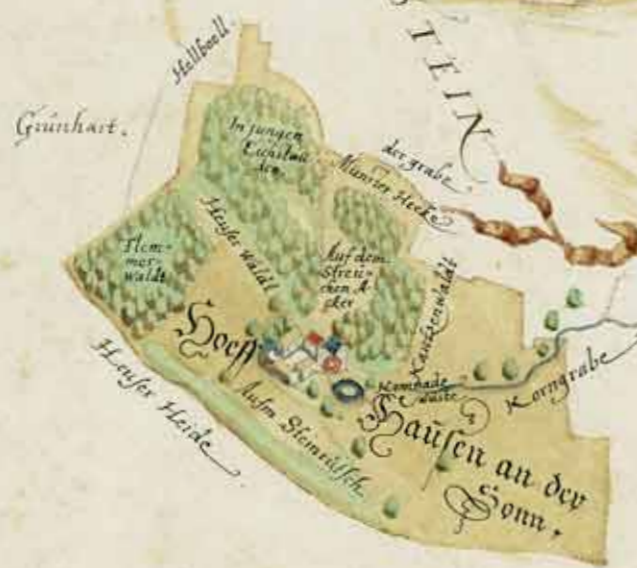 STEIN
Hellboell.
Grünhart.
In jungen
Eichslau
den.
der grabe
Münster Hecke
Flem=
mer
waldt
Heuser Waldt
Auf dem
Streü=
chen A=
cker
Kautzenwaldt
Hoeff
Heuser Heide.
Aufm Steinrütsch
Kemnade
wüste
Korngrabe
Haüsen an der
Sonn.